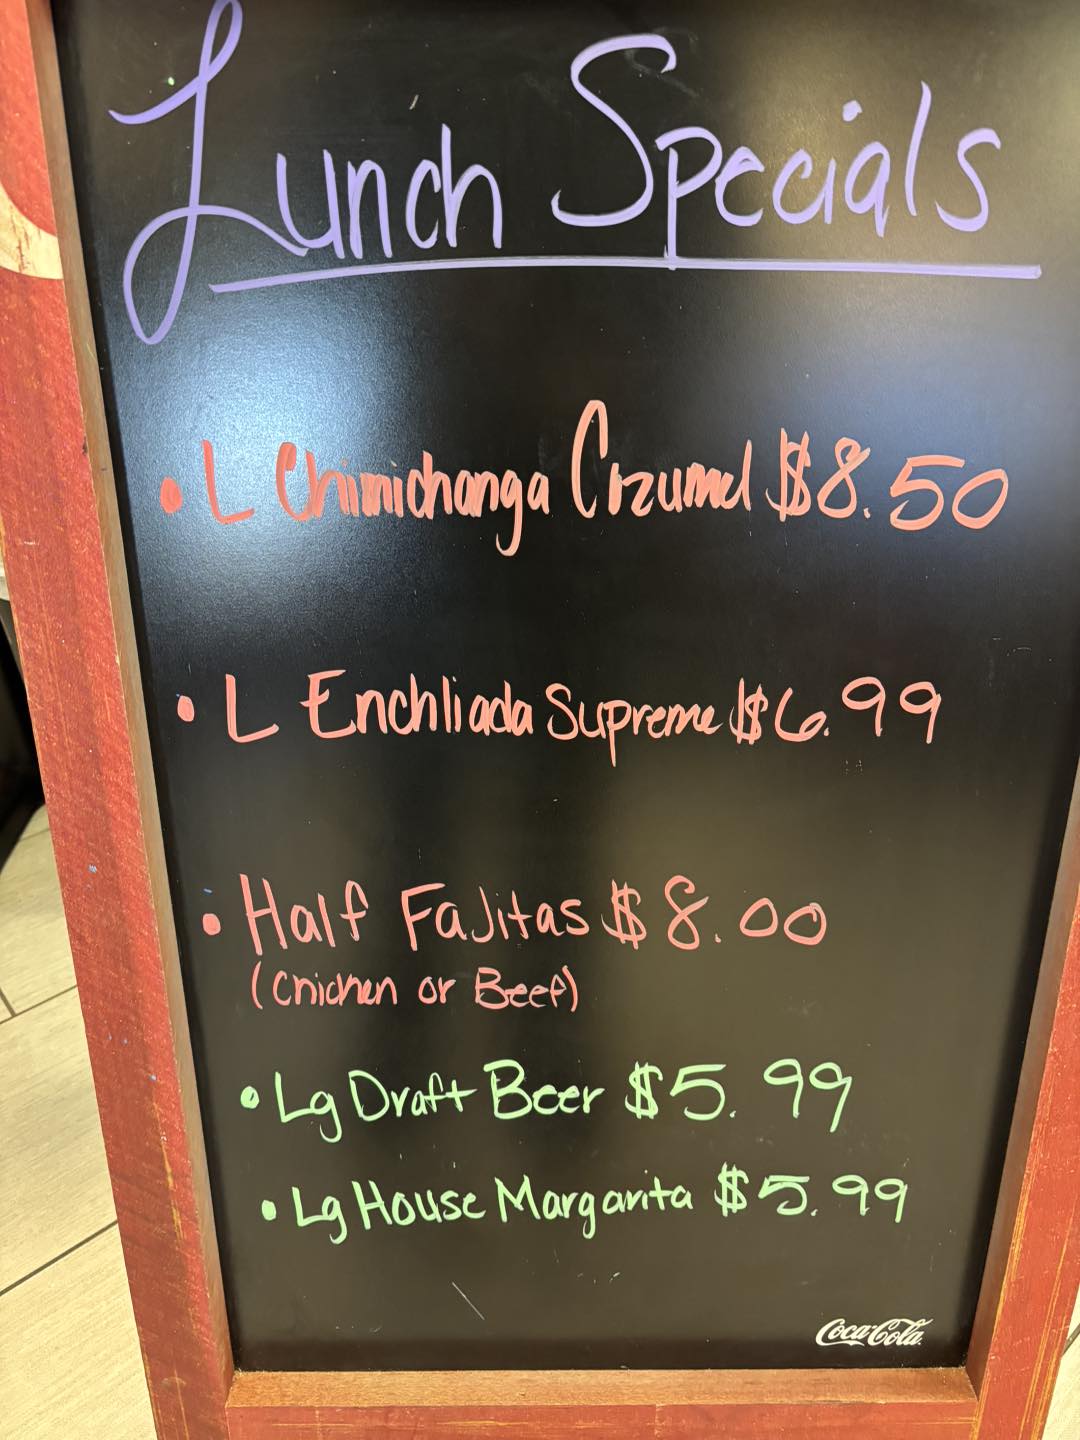 Lunch Specials
• L Chimichanga Cozumel $8.50
• L Enchliada Supreme $6.99
• Half Fajitas $8.00
(Chicken or Beef)
• Lg Draft Beer $5.99
• Lg House Margarita $5.99
Coca-Cola